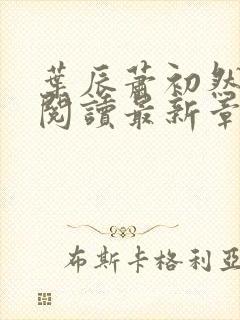 葉辰蕭初然
閱讀最新章
布斯卡格利亞